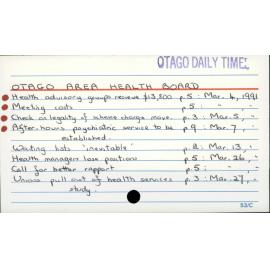 OTAGO DAILY TIMES
OTAGO AREA HEALTH BOARD
Health advisory groups receive $13,500 p.5 : Mar. 4, 1991
Meeting costs p.5 : " "
Check on legality of scheme charge move. p.3 : Mar. 5, "
After-hours psychiatric service to be p.9 : Mar. 7, "
established.
Waiting lists 'inevitable' p.8 : Mar. 13, "
Health managers lose positions p.5 : Mar. 26, "
Call for better rapport p.5 : " "
Unions pull out of health services p.3 : Mar. 27, "
study.
53/C